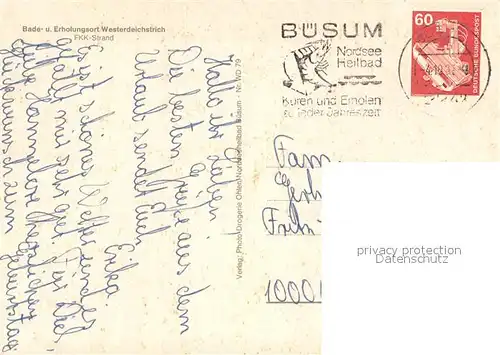 Bade- u. Erholungsort Westerdeichstrich
FKK-Strand
Hallo ihr Lieben!
Die besten Grüße aus dem
Urlaub sendet Euch
Erika
Es ist schönes
gefällt mir sehr gut. Für Dich,
liebe Hannelore herzlichen
Glückwunsch zum
Geburtstag
Verlag: Photo-Drogerie Ohlen, Nordseeheilbad Büsum - Nr. WD 79
BÜSUM
Nordsee
Heilbad
Kuren und Erholen
zu jeder Jahreszeit
60
DEUTSCHE BUNDESPOST
Fam
1000
privacy protection
Datenschutz